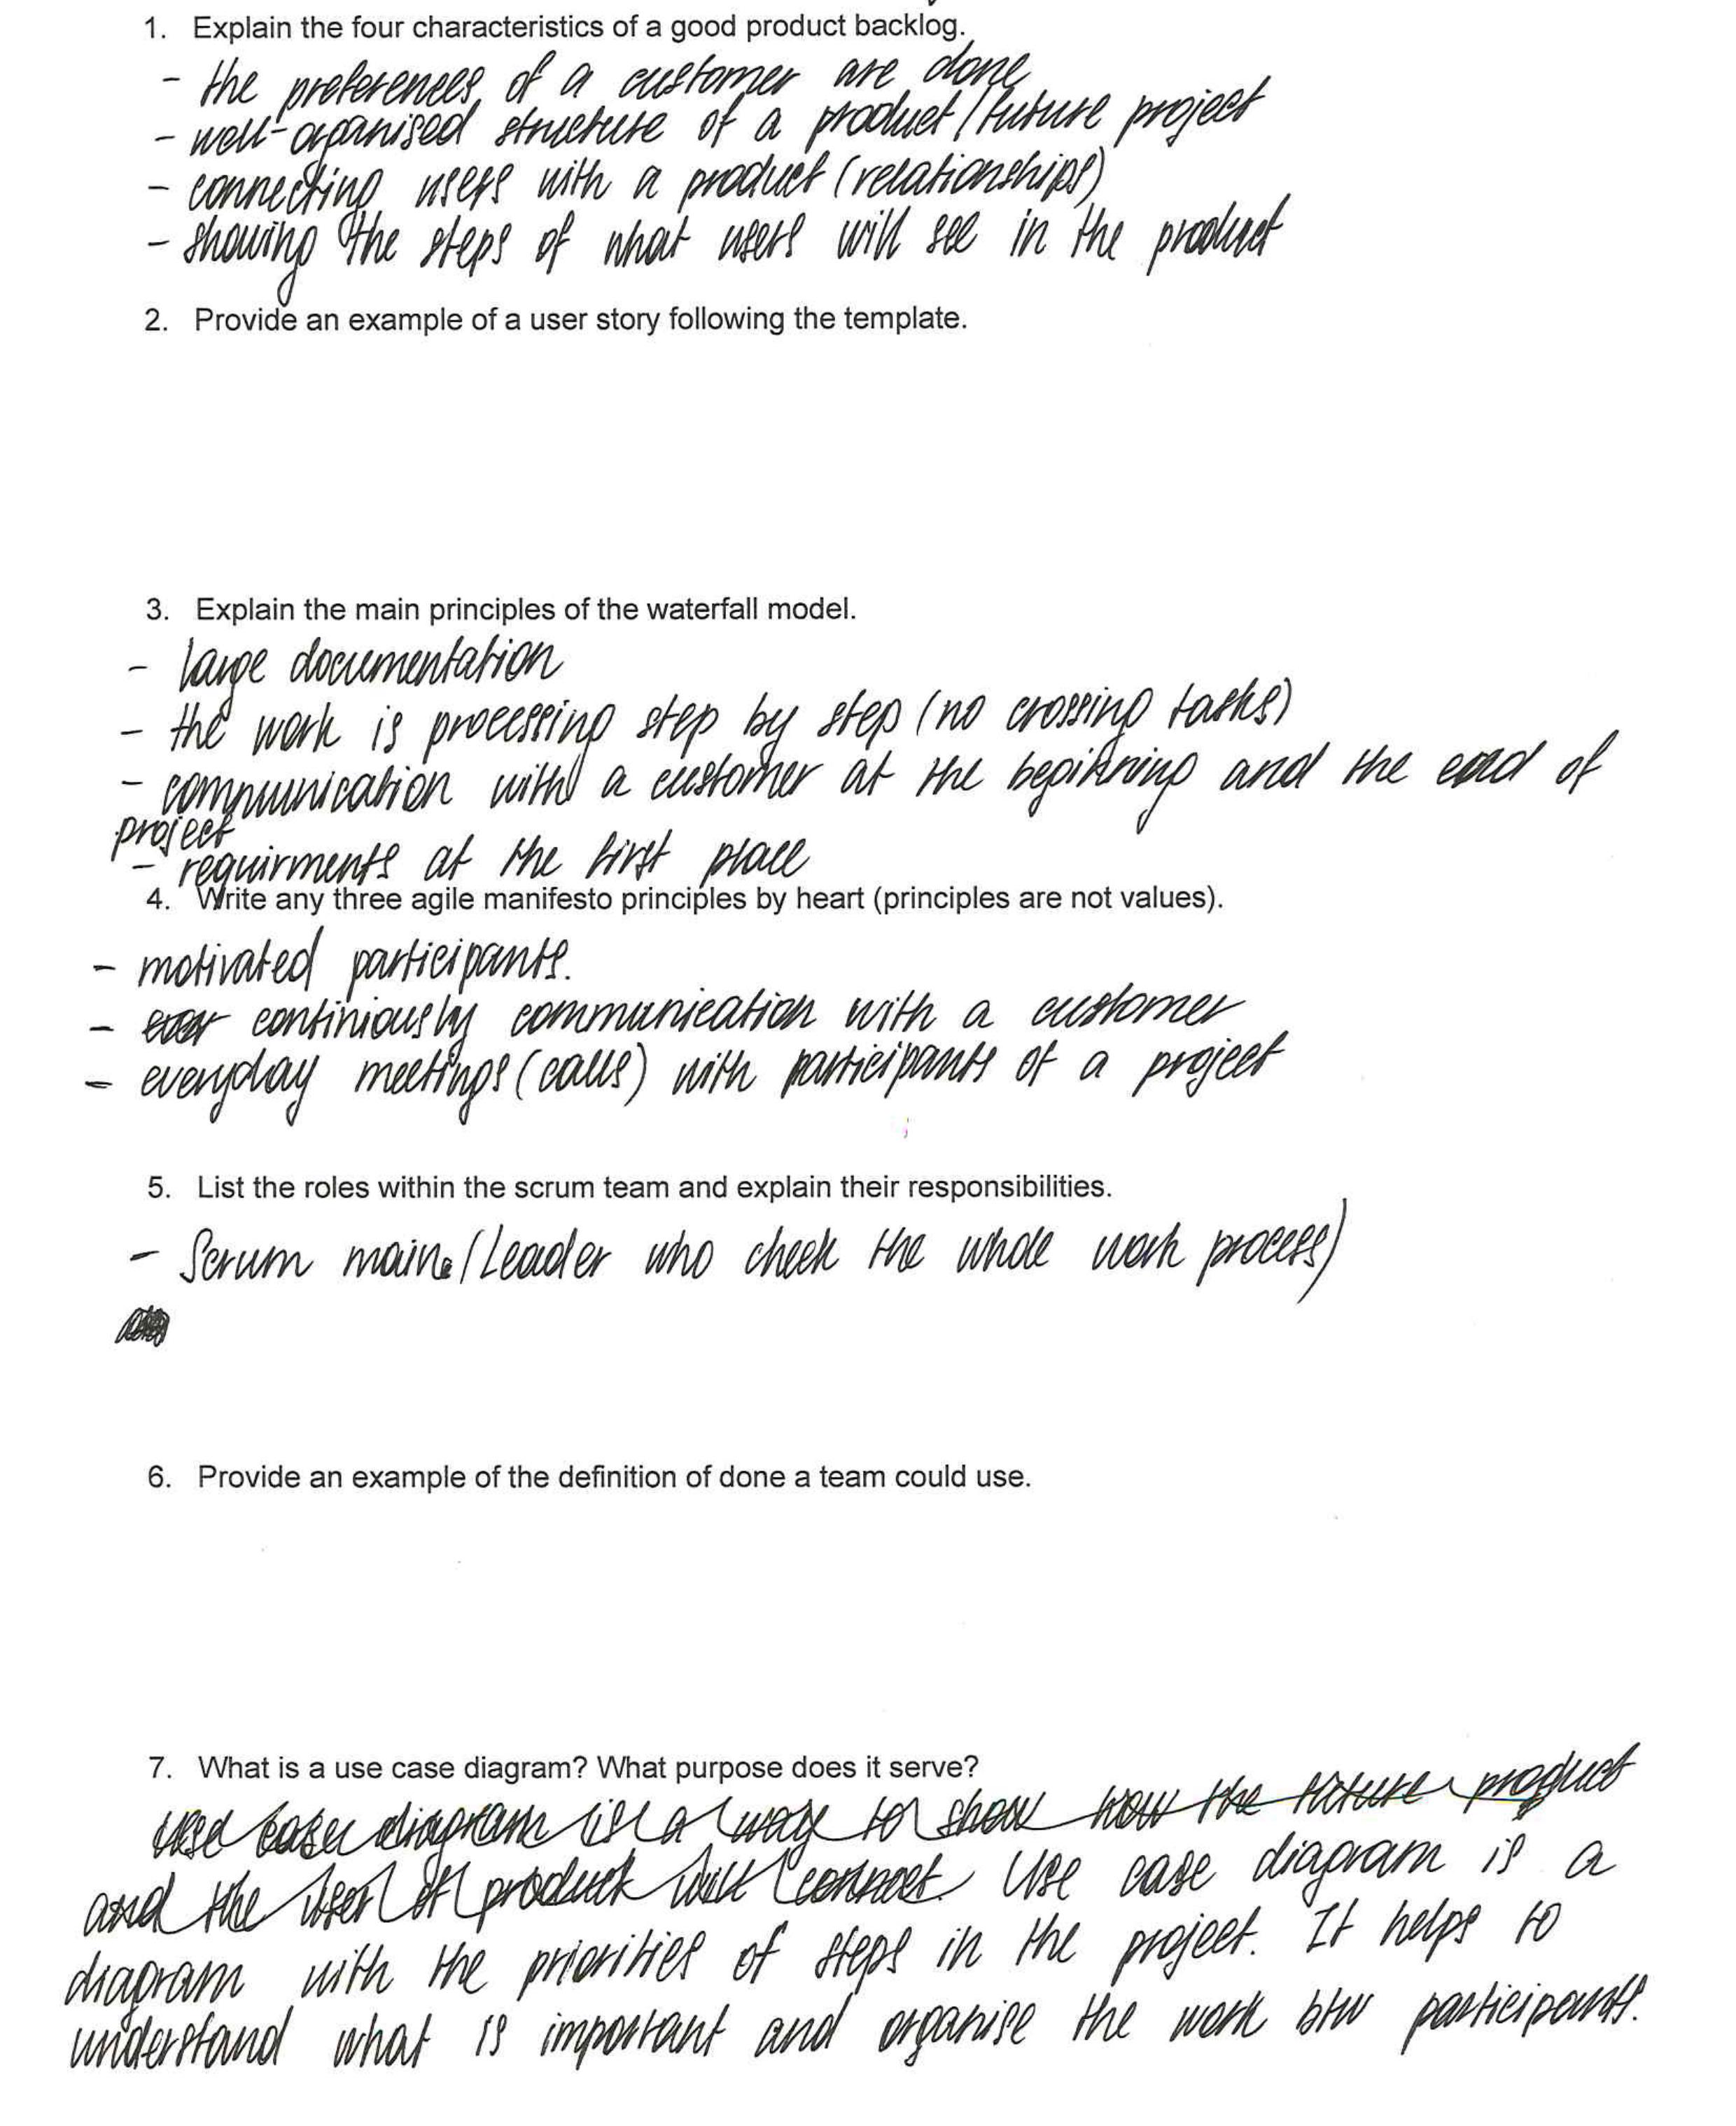 1. Explain the four characteristics of a good product backlog.
- the preferences of a customer are done
- well-organised structure of a product/future project
- connecting users with a product (relationships)
- showing the steps of what users will see in the product
2. Provide an example of a user story following the template.
3. Explain the main principles of the waterfall model.
- large documentation
- the work is processing step by step (no crossing tasks)
- communication with a customer at the beginning and the end of
project
- requirments at the first place
4. Write any three agile manifesto principles by heart (principles are not values).
- motivated participants.
- continiously communication with a customer
- everyday meetings (calls) with participants of a project
5. List the roles within the scrum team and explain their responsibilities.
- Scrum main (Leader who check the whole work process)
6. Provide an example of the definition of done a team could use.
7. What is a use case diagram? What purpose does it serve?
Use case diagram is a way to show how the future product
and the user of product will connect. Use case diagram is a
diagram with the priorities of steps in the project. It helps to
understand what is important and organise the work btw participants.